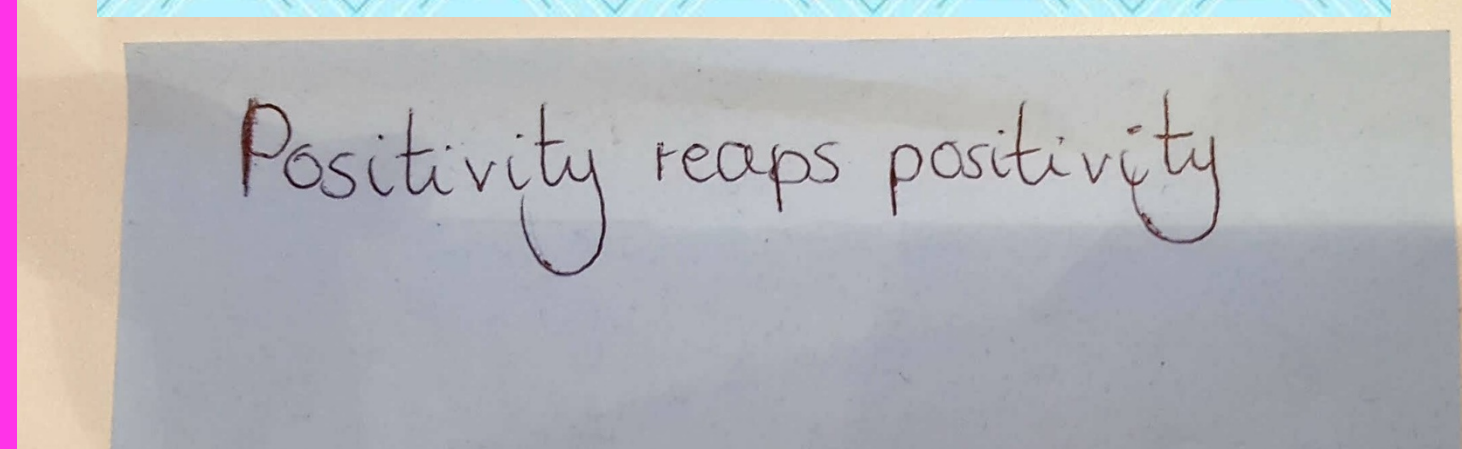 Positivity reaps positivity